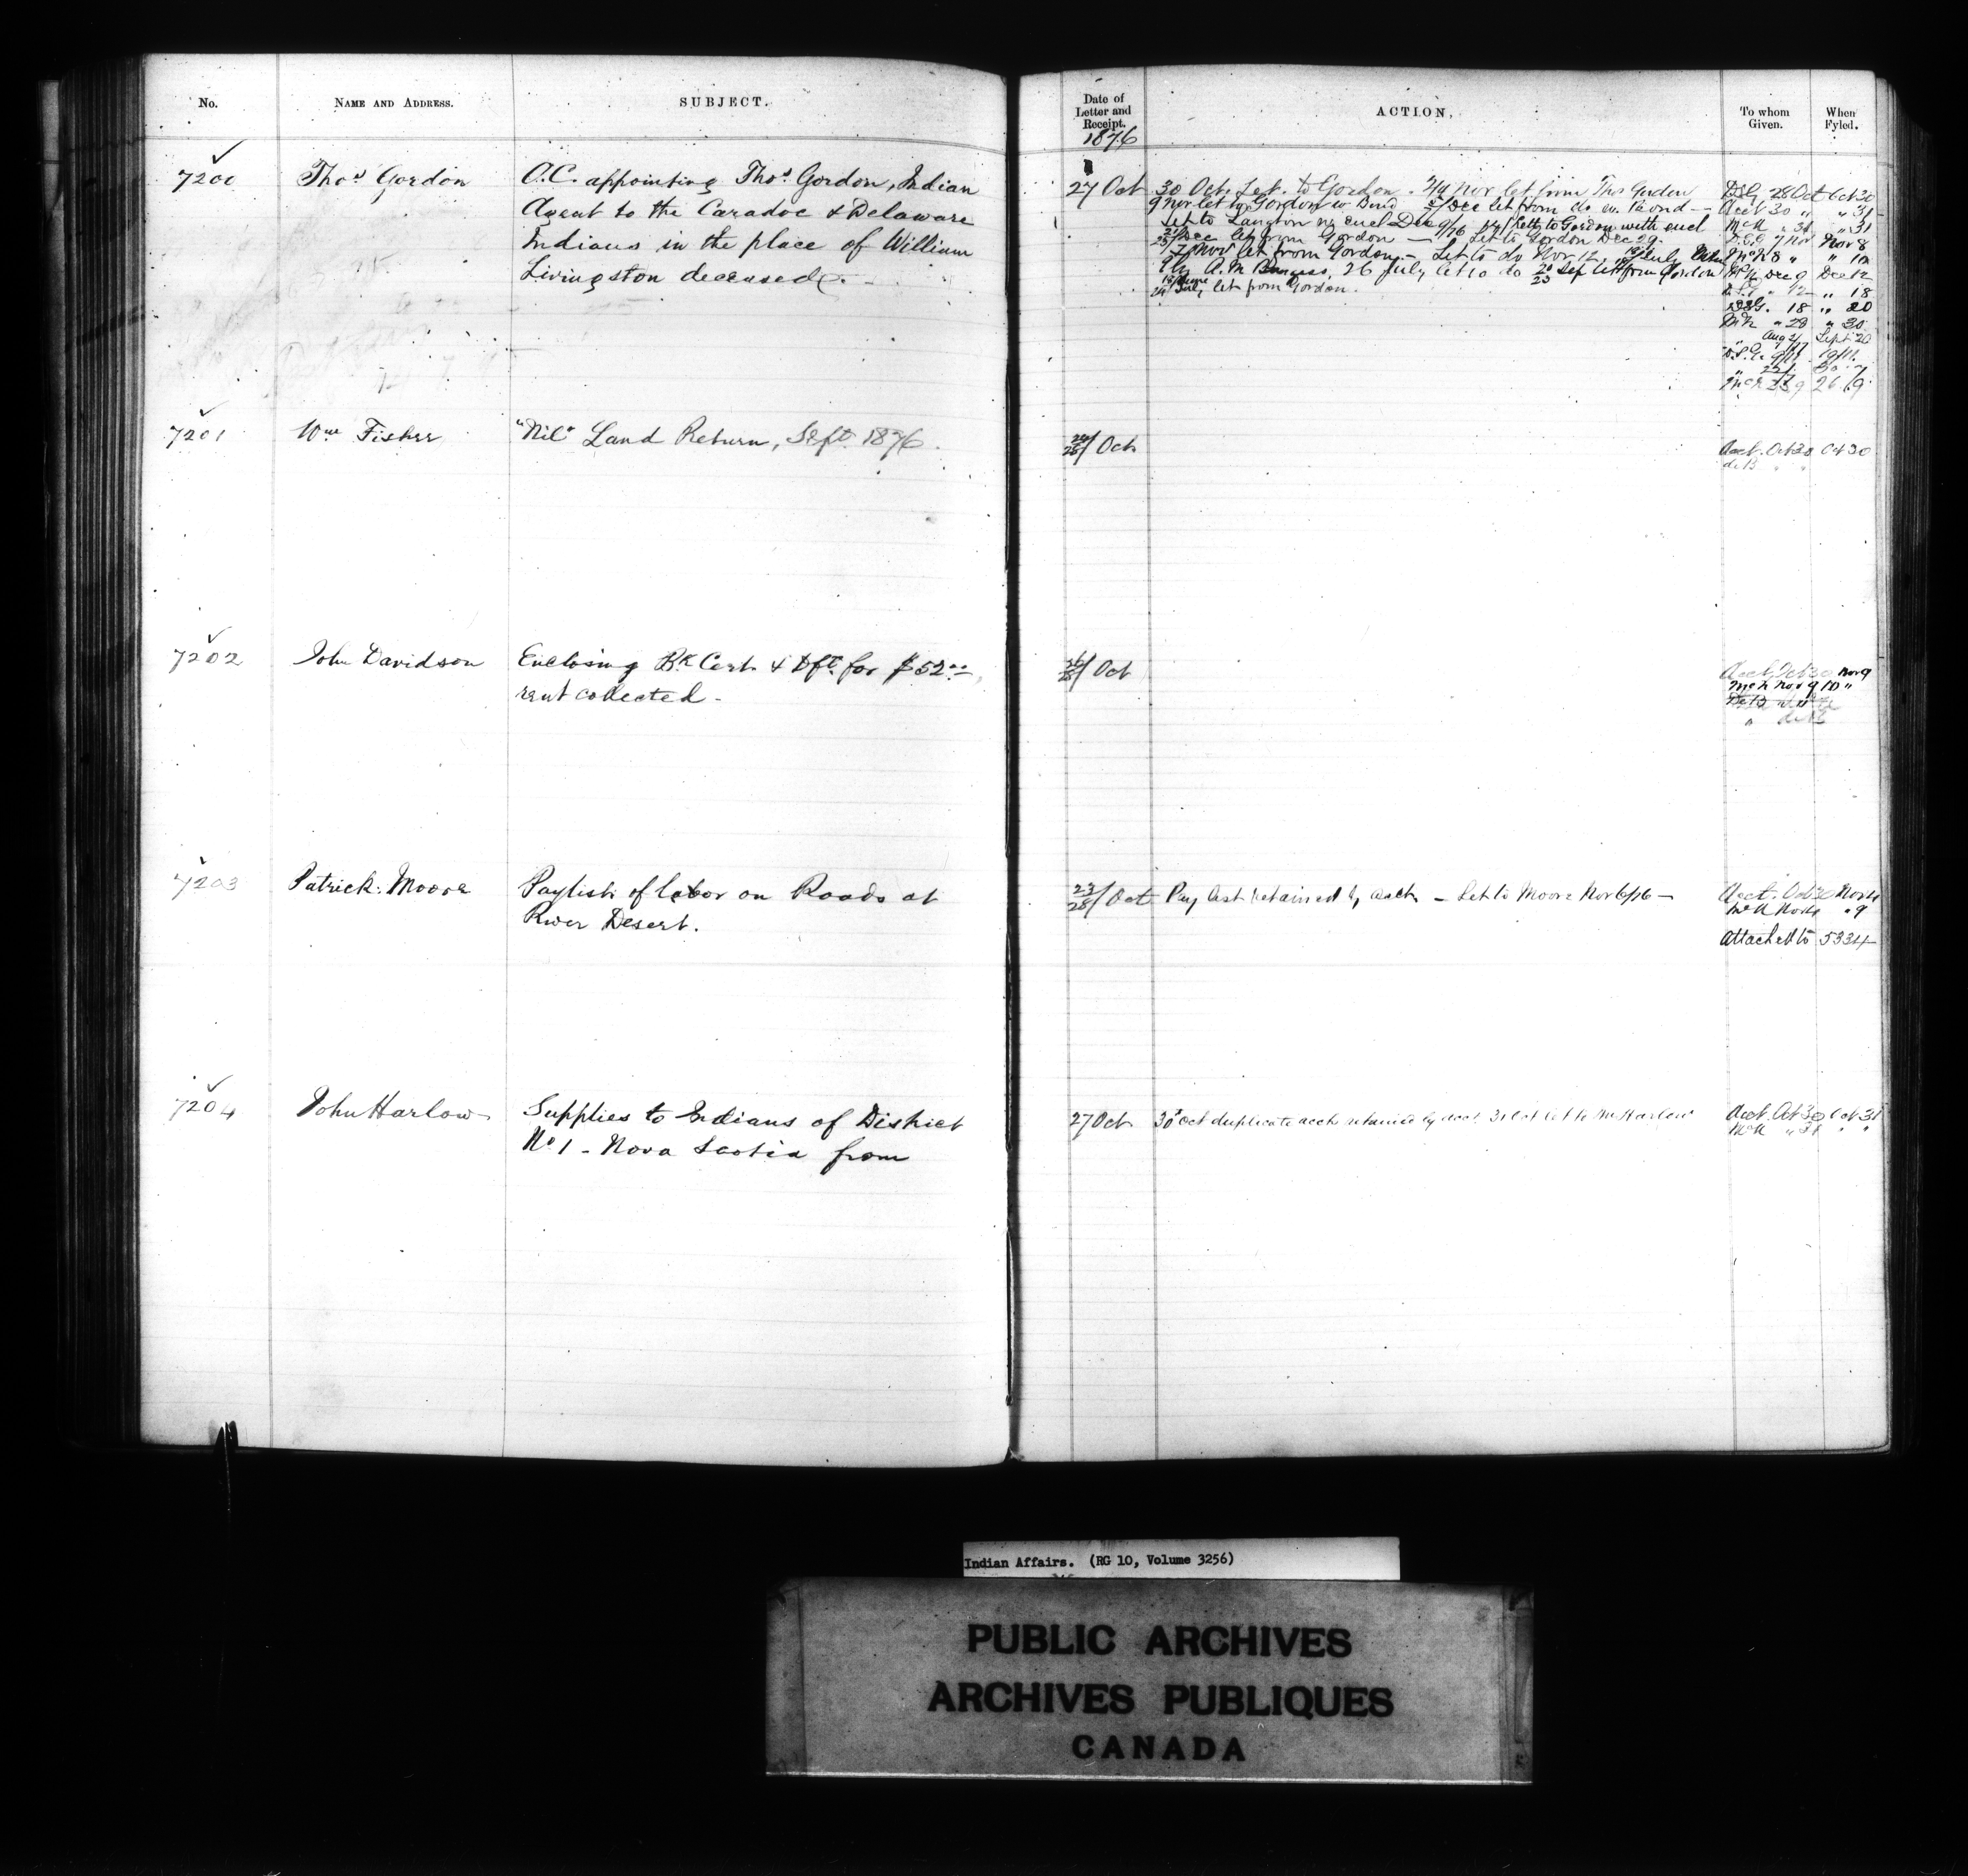 No. NAME AND ADDRESS. SUBJECT. Date of Letter and Receipt. ACTION. To whom Given. When Fyled.
1876
7200 Thos Gordon O.C. appointing Thos. Gordon, Indian
Agent to the Caradoc & Delaware
Indians in the place of William
Livingston deceased.
27 Oct 30 Oct. Let. to Gordon. Nov let from Thos Gordon
9 Nov let to Gordon w Bond Dec let from do w. Bond
Let to Langton w encl Dec 9/76 Let to Gordon with encl
Dec let from Gordon — Let to Gordon Dec 29.
Nov let from Gordon — Let to do Nov 12, July
A. M. Burgess, 26 July let to do 20/23 Sep let from Gordon
July let from Gordon.
28 Oct Oct 30
Acct 30 " " 31
McN " 31 " 31
7 Nov Nov 8
McN 8 "
Dec 9 Dec 12
12 " 18
18 " 20
McN " 28 " 30
Sept 20
7201 Wm Fisher "Nil" Land Return, Sept. 1876. 24/28 Oct Acct. Oct 30 Oct 30
7202 John Davidson Enclosing Bk Cert. & Dft. for $52.00
rent collected -
Oct
Acct Oct 30 Nov 9
McN Nov 9 10 "
7203 Patrick Moore Paylist of labor on Roads at
River Desert.
23/28 Oct Pay list retained by acct. — Let to Moore Nov 6/76 —
Acct. Oct 30 Nov 4
McN Nov 4 " 9
Attached to 5334
7204 John Harlow Supplies to Indians of District
No 1 - Nova Scotia from
27 Oct 30 Oct duplicate acct retained by acct. 31 Oct let to Mr Harlow
Acct. Oct 30 Oct 31
McN " 31 " "
Indian Affairs. (RG 10, Volume 3256)
PUBLIC ARCHIVES
ARCHIVES PUBLIQUES
CANADA